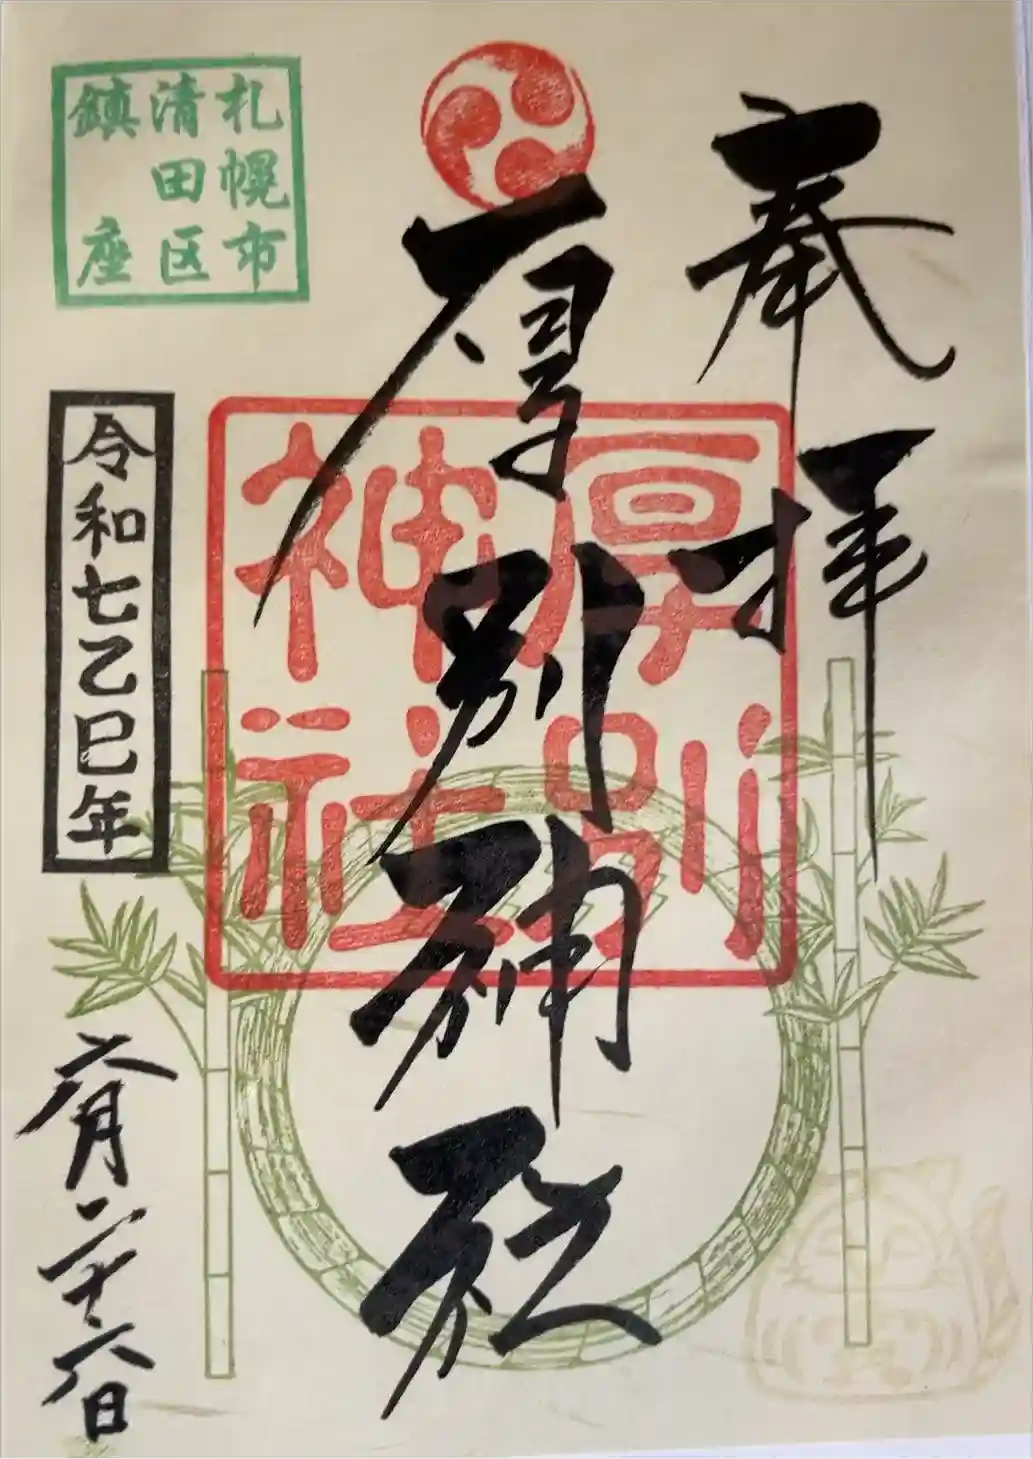 奉拝
厚別神社
厚別
神社
札幌市
清田区
鎮座
令和七乙巳年
六月二十六日